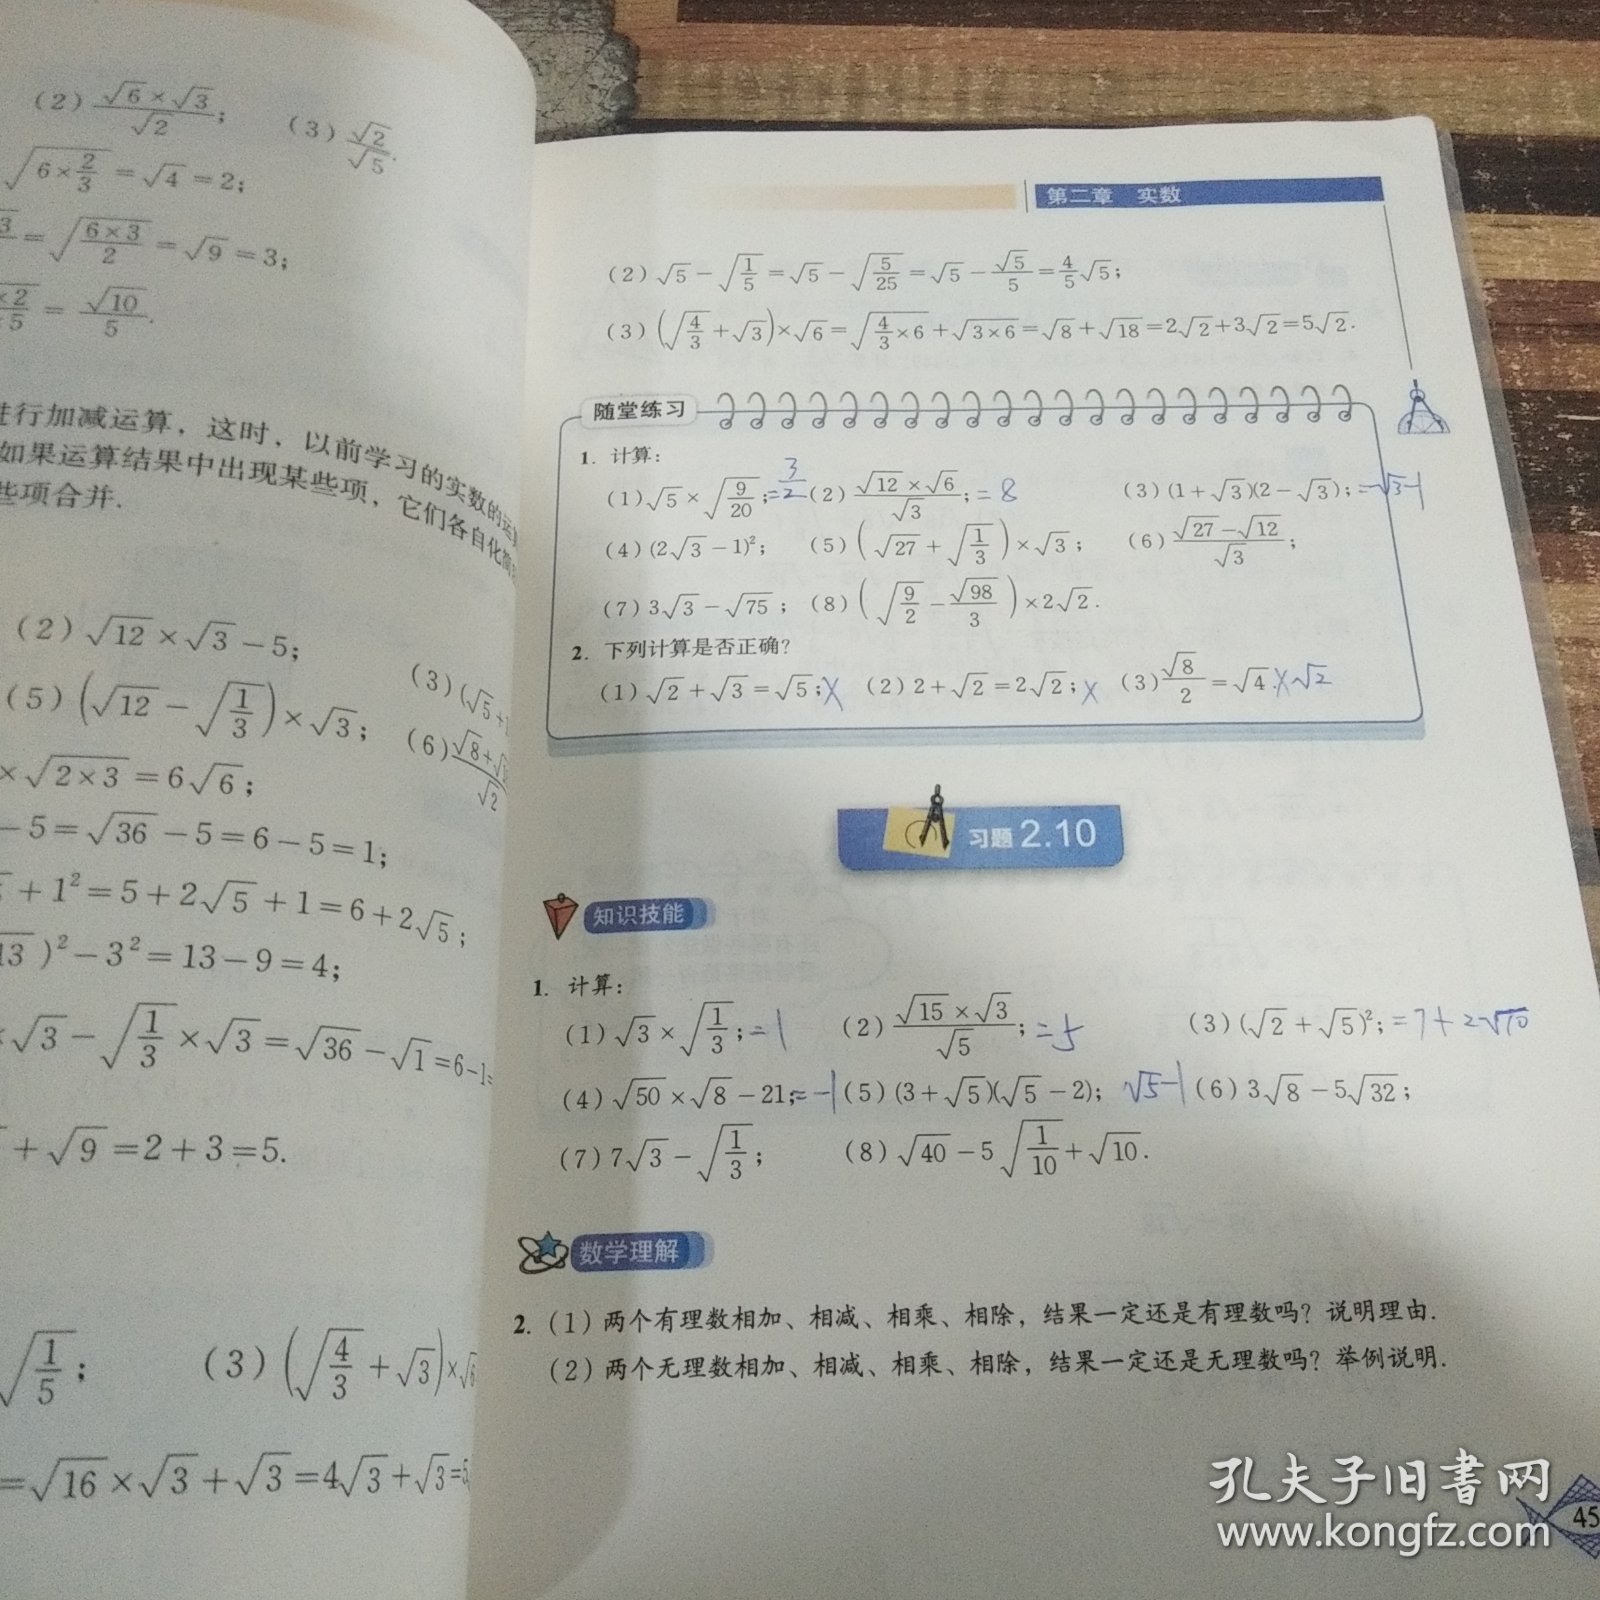 (2) √6×√3/√2; (3) √2/√5.
√(6×2/3)=√4=2;
=√(6×3/2)=√9=3;
=√10/5.
进行加减运算，这时，以前学习的实数的运
如果运算结果中出现某些项，它们各自化简
些项合并.
(2) √12×√3-5; (3) (√5+1
(5) (√12-√(1/3))×√3; (6)
×√(2×3)=6√6;
-5=√36-5=6-5=1;
+1²=5+2√5+1=6+2√5;
13)²-3²=13-9=4;
×√3-√(1/3)×√3=√36-√1=6-1=
+√9=2+3=5.
√(1/5); (3) (√(4/3)+√3)×√6
=√16×√3+√3=4√3+√3=5
第二章 实数
(2) √5-√(1/5)=√5-√(5/25)=√5-√5/5=4/5√5;
(3) (√(4/3)+√3)×√6=√(4/3×6)+√(3×6)=√8+√18=2√2+3√2=5√2.
随堂练习
1. 计算:
(1) √5×√(9/20);=3/2 (2) √12×√6/√3;=8 (3) (1+√3)(2-√3);=√3-1
(4) (2√3-1)²; (5) (√27+√(1/3))×√3; (6) (√27-√12)/√3;
(7) 3√3-√75; (8) (√(9/2)-√98/3)×2√2.
2. 下列计算是否正确?
(1) √2+√3=√5;× (2) 2+√2=2√2;× (3) √8/2=√4.×√2
习题2.10
知识技能
1. 计算:
(1) √3×√(1/3);=1 (2) √15×√3/√5;=5 (3) (√2+√5)²;=7+2√10
(4) √50×√8-21;=-1 (5) (3+√5)(√5-2); √5-1 (6) 3√8-5√32;
(7) 7√3-√(1/3); (8) √40-5√(1/10)+√10.
数学理解
2. (1) 两个有理数相加、相减、相乘、相除，结果一定还是有理数吗？说明理由.
(2) 两个无理数相加、相减、相乘、相除，结果一定还是无理数吗？举例说明.
45
孔夫子旧书网
www.kongfz.com